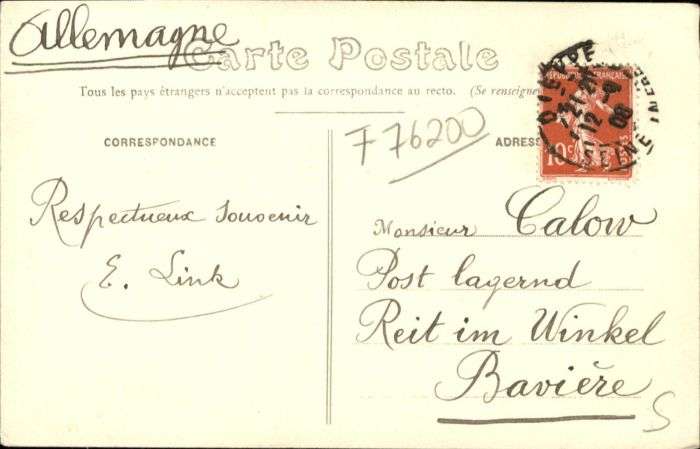 Allemagne
Carte Postale
Tous les pays étrangers n'acceptent pas la correspondance au recto. (Se renseigne
CORRESPONDANCE
ADRES
F 76200
REPUBLIQUE FRANÇAISE
10c
DIEPPE
12
08
SEINE INFRE
Respectueux souvenir
E. Link
Monsieur Calow
Post lagernd
Reit im Winkel
Bavière